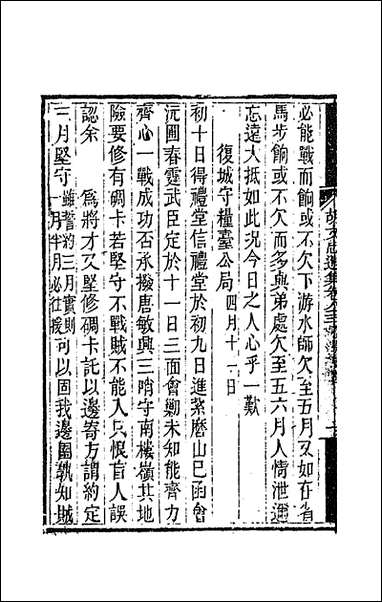 胡文忠遺集卷八十三
必能戰而餉或不欠下游水師欠至五月又如在省
馬步餉或不欠而多與弟處欠至五六月人情泄邇
忘遠大抵如此況今日之人心乎一歎
復城守糧臺公局 四月十一日
初十日得禮堂信禮堂於初九日進紮磨山已函會
沅圃春霆武臣定於十一日三面會勦未知能齊力
齊心一戰成功否承撥唐敏興三哨守南樓嶺其地
險要修有碉卡若堅守不戰賊不能入只恨盲人誤
認余 為將才又堅修碉卡託以邊寄方謂約定
三月堅守 雖誓約三月實則一月半月必往援 可以固我邊圉孰知賊